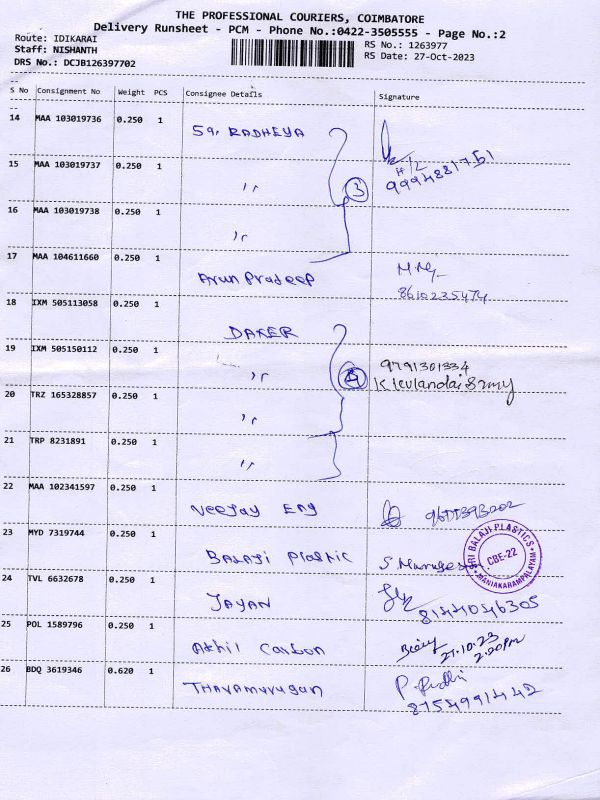 THE PROFESSIONAL COURIERS, COIMBATORE
Delivery Runsheet - PCM - Phone No.:0422-3505555 - Page No.:2
Route: IDIKARAI
RS No.: 1263977
Staff: NISHANTH
RS Date: 27-Oct-2023
DRS No.: DCJB126397702
S No Consignment No Weight PCS Consignee Details Signature
14 MAA 103019736 0.250 1 RADHEYA
15 MAA 103019737 0.250 1 〃
3
16 MAA 103019738 0.250 1 〃
17 MAA 104611660 0.250 1 Arun Pradeep
8610235474
18 IXM 505113058 0.250 1 DAKER
19 IXM 505150112 0.250 1 〃 9791301334
20 TRZ 165328857 0.250 1 〃
21 TRP 8231891 0.250 1 〃
22 MAA 102341597 0.250 1 Veejay Eng
23 MYD 7319744 0.250 1 BALAJI Plastic S. Murugesan
SRI BALAJI PLASTICS
CBE-22
MANIAKARAMPALAYAM
24 TVL 6632678 0.250 1 JAYAN
8144046305
25 POL 1589796 0.250 1 Akhil Carbon
27.10.23
2.20PM
26 BDQ 3619346 0.620 1 THAVAMURUGAN
8754991442